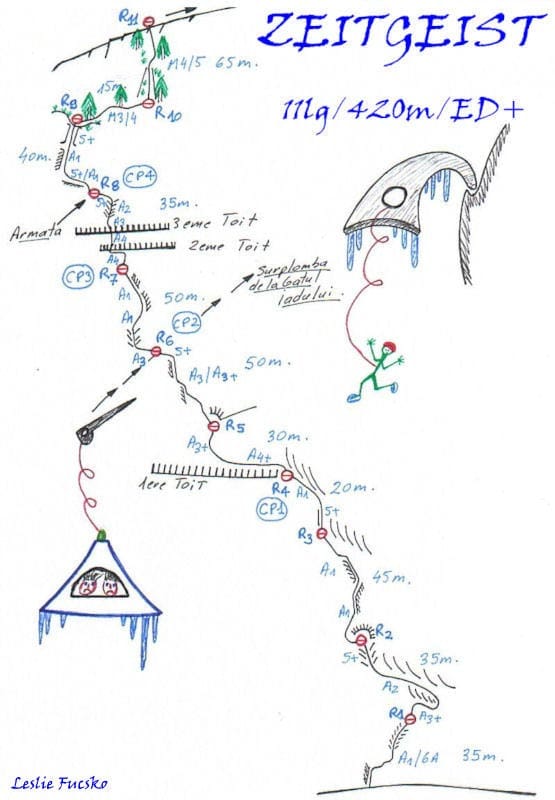 ZEITGEIST
11lg/420m/ED+
R11
M4/5 65m.
15m
R9
M3/4
R10
5+
40m.
A1
5+/A1
R8
CP4
5+
A2
35m.
Armata
A3
3eme Toit
A4
2eme Toit
A4
R7
CP3
Surplomba
de la Gatul
Iadului.
A1
50m.
A1
CP2
R6
5+
A3
50m.
A3/A3+
R5
A3+
30m.
A4+
1ere Toit
R4
A1
20m.
CP1
5+
R3
A1
45m.
A1
R2
5+
35m.
A2
R1
A3+
A1/6A
35m.
Leslie Fucsko